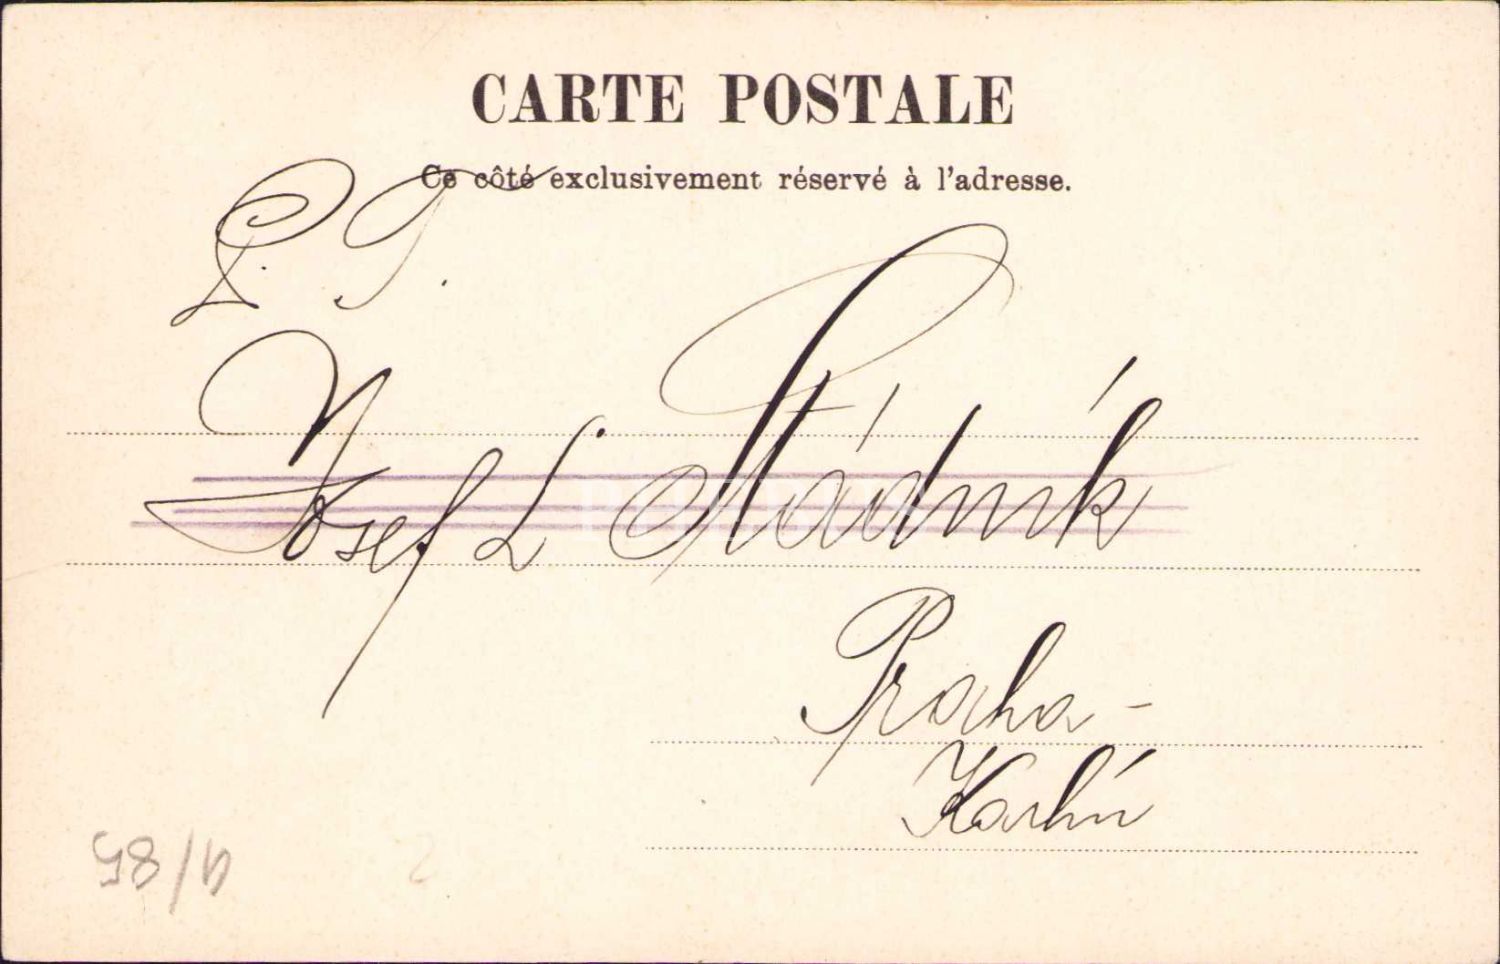 CARTE POSTALE
Ce côté exclusivement réservé à l'adresse.
P. T.
Josef L Stádník
Praha-
Karlín